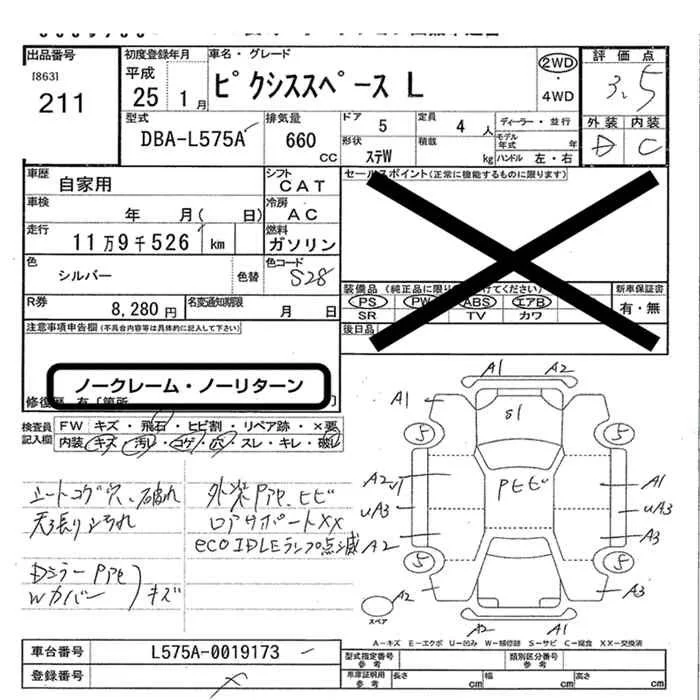 出品番号
[863]
211
初度登録年月
平成
25 1月
車名・グレード
ピクシススペース L
2WD
・
4WD
評価点
3.5
外装 内装
D C
型式
DBA-L575A
排気量
660
CC
ドア
5
定員
4 人
形状
ステW
積載
kg
ディーラー・並行
モデル
年式 年
ハンドル 左・右
車歴
自家用
シフト
CAT
車検
年 月( 日)
冷房
AC
走行
11万9千526 km
燃料
ガソリン
色
シルバー
色替
色コード
S28
R券
8,280円
名変通知期限
月 日
セールスポイント(正常に機能するものに限ります)
新車保証書
有・無
PS PW ABS エアB
SR TV カワ
後日品
注意事項申告欄(不具合内容等は具体的に記入して下さい)
ノークレーム・ノーリターン
検査員
記入欄
FW キズ・飛石・ヒビ割・リペア跡・×要
内装 キズ・汚レ・コゲ・穴・スレ・キレ・破レ
シートコゲ穴、破れ
天張りよごれ
Dミラー
Wカバー
キズ
外装 ヒビ
ロアサポートXX
eco IDLEランプ点滅
A1 A2
A1
S1
5 5
A2 A1
Pヒビ
uA3 uA3
A2 A3
5 5
A2 A3
A2 A1
スペア
A−キズ E−エクボ U−凹み W−補修跡 S−サビ C−腐食 XX−交換済
車台番号
L575A-0019173
登録番号
型式指定番号
参考
類別区分番号
参考
車庫証明用
参考
長さ cm
幅 cm
高さ cm